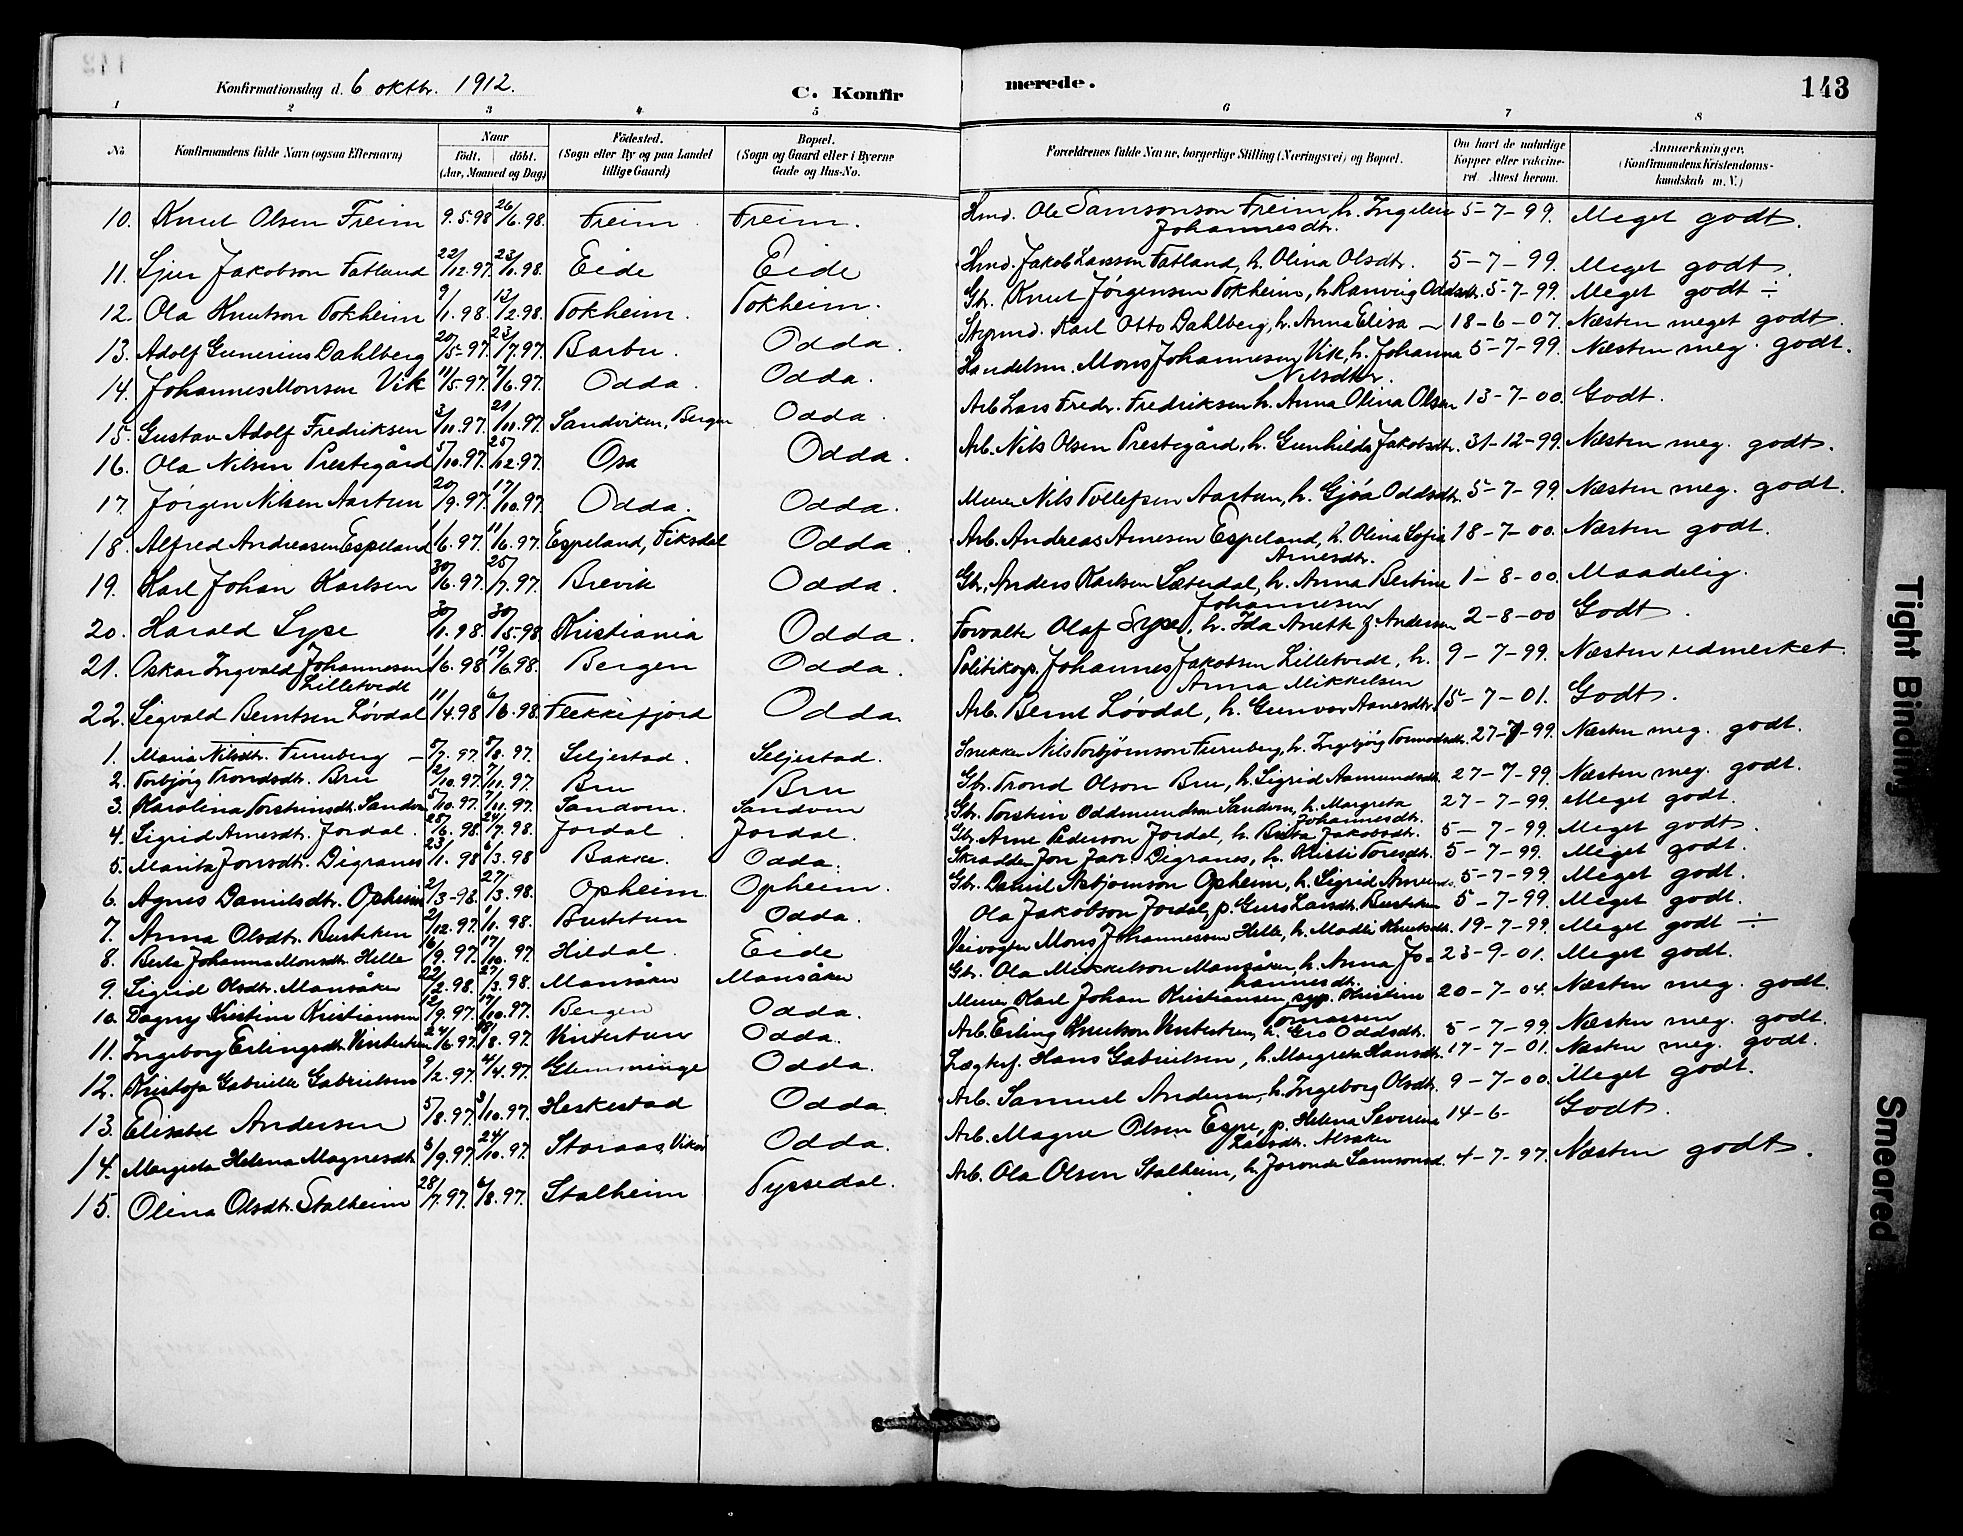 142
Konfirmationsdag d. 6 oktbr. 1912. C. Konfirmerede. 143
1 2 3 4 5 6 7 8
No Konfirmandens fulde Navn (ogsaa Efternavn) Naar födt. döbt. (Aar, Maaned og Dag) Födested. (Sogn eller By og paa Landet tillige Gaard) Bopæl. (Sogn og Gaard eller i Byerne Gade og Hus-No. Forældrenes fulde Navne, borgerlige Stilling (Næringsvei) og Bopæl. Om havt de naturlige Kopper eller vaccineret. Attest herom. Anmærkninger. (Konfirmandens Kristendomskundskab m. V.)
10. Knut Olsen Freim 9.5.98 26/6.98. Freim. Freim. Hmd. Ole Samsonson Freim, h. Ingeleiv Johannesdtr. 5-7-99. Meget godt.
11. Sjur Jakobson Fatland 22/12.97. 23/1.98. Eide Eide Hmd. Jakob Larssen Fatland, h. Olina Olsdtr. 5-7-99. Meget godt.
12. Ola Knutson Tokheim 9/1.98. 12/2.98. Tokheim. Tokheim. Gbr. Knut Jørgensen Tokheim, h. Ranveig Oddsdtr. 5-7-99. Meget godt ÷
13. Adolf Gunerius Dahlberg 20/5-97. 23/7.97. Barbu. Odda. Karl Otto Dahlberg, h. Anna Elisa — 18-6-07. Næsten meget godt.
14. Johannes Monsen Vik 11/5.97. 7/6.97. Odda. Odda. Handelsm. Mons Johannesen Vik, h. Johanna Nilsdtr. 5-7-99. Næsten meg. godt.
15. Gustav Adolf Fredriksen 3/11.97. 21/11.97. Sandviken, Bergen Odda. Arb. Lars Fredr. Fredriksen h. Anna Olina Olsen 13-7-00. Godt.
16. Ola Nilsen Prestegård 5/10.97. 25/12.97. Osa Odda. Arb. Nils Olsen Prestegård, h. Gunhilda Jakobsdtr. 31-12-99. Næsten meg. godt.
17. Jørgen Nilsen Aartun 20/9.97. 17/10.97. Odda. Odda. Murer Nils Tollefsen Aartun, h. Gjøa Oddsdtr. 5-7-99. Næsten meg. godt.
18. Alfred Andreasen Espeland 1/6.97. 11/6.97. Espeland, Fiksdal Odda. Arb. Andreas Arnesen Espeland, h. Olina Sofia Arnesdtr. 18-7-00. Næsten godt.
19. Karl Johan Karlsen 30/6.97. 25/7.97. Brevik Odda. Gbr. Anders Karlsen Sæterdal, h. Anna Bertine Johannesen 1-8-00. Maadelig.
20. Harald Sype 30/1.98. 30/5.98. Kristiania Odda. Forvalter Olaf Sype, h. Ida Anette f. Andersen 2-8-00 Godt.
21. Oskar Ingvald Johannesen Lilletvedt 1/6.98. 19/6.98. Bergen Odda. Politikop. Johannes Jakobsen Lilletvedt, h. Anna Mikkelsen 9-7-99. Næsten udmerket.
22. Sigvald Berntsen Løvdal 11/4.98 6/6.98. Flekkefjord Odda. Arb. Bernt Løvdal, h. Gunvor Aanesdtr. 15-7-01. Godt.
1. Maria Nilsdtr. Furuberg — 5/7.97. 8/8.97. Seljestad. Seljestad. Snekker Nils Torbjørnson Furuberg, h. Ingebjørg Tormodsdtr. 27-7-99. Næsten meg. godt.
2. Torbjørg Trondsdtr. Bru 12/10.97. 7/11.97. Bru Bru Gbr. Trond Olson Bru, h. Sigrid Aamundsdtr. 27-7-99. Næsten meg. godt.
3. Karolina Torsteinsdtr. Sandven 5/10.97. 7/11.97. Sandven. Sandven Gbr. Torstein Oddmundsen Sandven, h. Margreta Johannesdtr. 27-7-99. Meget godt.
4. Sigrid Arnesdtr. Jordal. 25/6.98. 24/7.98. Jordal. Jordal. Gbr. Arne Pederson Jordal, h. Brita Jakobsdtr. 5-7-99. Meget godt.
5. Marita Jonsdtr. Digranes 23/1.98 6/3.98 Bakke. Odda. Skrædder Jon Jak. Digranes, h. Kristi Toresdtr. 5-7-99. Meget godt.
6. Agnes Danielsdtr. Opheim 2/3-98. 27/3.98. Opheim. Opheim. Gbr. Daniel Asbjørnson Opheim, h. Sigrid Amunds. 5-7-99. Meget godt.
7. Anna Olsdtr. Bustetun 2/12.97. 1/1.98. Bustetun Odda. Ola Jakobson Jordal, p. Guro Larsdtr. Bustetun 5-7-99. Meget godt.
8. Berta Johanna Monsdtr. Hille 16/9.97. 17/10.97. Hildal. Eide Veivogter Mons Johannessen Hille, h. Madli Knutsdtr. 19-7-99. Meget godt ÷
9. Sigrid Olsdtr. Mansåker 22/2.98. 27/3.98. Mansåker Mansåker Gbr. Ola Mikkelson Mansåker, h. Anna Johannesdtr. 23-9-01. Meget godt.
10. Dagny Kristine Kristiansen 12/9.97. 17/10.97. Bergen Odda. Murer Karl Johan Kristiansen, Kristine Tomassen 20-7-04. Næsten meg. godt.
11. Ingeborg Erlingsdtr. Vintertun 24/6.97. 18/8.97. Vintertun Odda. Arb. Erling Knutson Vintertun, h. Gro Oddsdtr. 5-7-99. Næsten meg. godt.
12. Kristofa Gabrielle Gabrielsen 9/2.97. 4/4.97. Glemminge Odda. Hans Gabrielsen, h. Margreta Hansdtr. 17-7-01. Næsten meg. godt.
13. Elisabet Andersen 5/8.97. 3/10.97. Heskestad Odda. Arb. Samuel Andersen, h. Ingeborg Olsdtr. 9-7-00. Meget godt.
14. Margreta Helena Magnesdtr. 5/9.97. 24/10.97. Storaas, Vikør Odda. Arb. Magne Olsen Espe, p. Helena Severine Larsdtr. Alsaker 14-6- Godt.
15. Olina Olsdtr. Stalheim 28/7.97. 6/8.97. Stalheim Tyssedal. Arb. Ola Olsen Stalheim, h. Joronda Samsonsd. 4-7-97. Næsten godt.
Tight Binding
Smeared